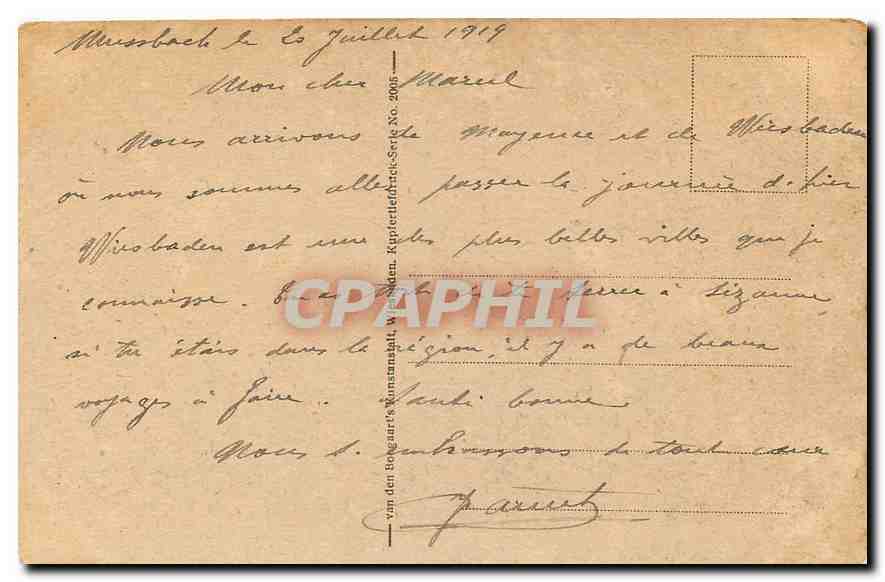 Mussbach le 20 Juillet 1919
Mon cher Marcel
Nous arrivons de Mayence et de Wiesbaden
où nous sommes allés passer la journée d'hier
Wiesbaden est une des plus belles villes que je
connaisse. à Sézanne,
si tu étais dans la région, il y a de beaux
voyages à faire. Santé bonne
Nous t'embrassons de tout cœur
van den Boogaart's Kunstanstalt, Wiesbaden. Kupfertiefdruck-Serie No. 2005
CPAPHIL